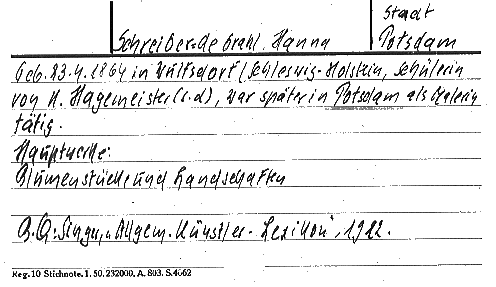 Stadt
Schreiber-de Grahl, Hanna Potsdam
Geb. 23.4.1864 in Wulfsdorf (Schleswig-Holstein, Schülerin
von K. Hagemeister (s.d), war später in Potsdam als Malerin
tätig.
Hauptwerke:
Blumenstücke und Landschaften
Singer, Allgem. Künstler-Lexikon, 1922.
Reg. 10 Stichnote. 1. 50. 232000, A. 803. S. 4662